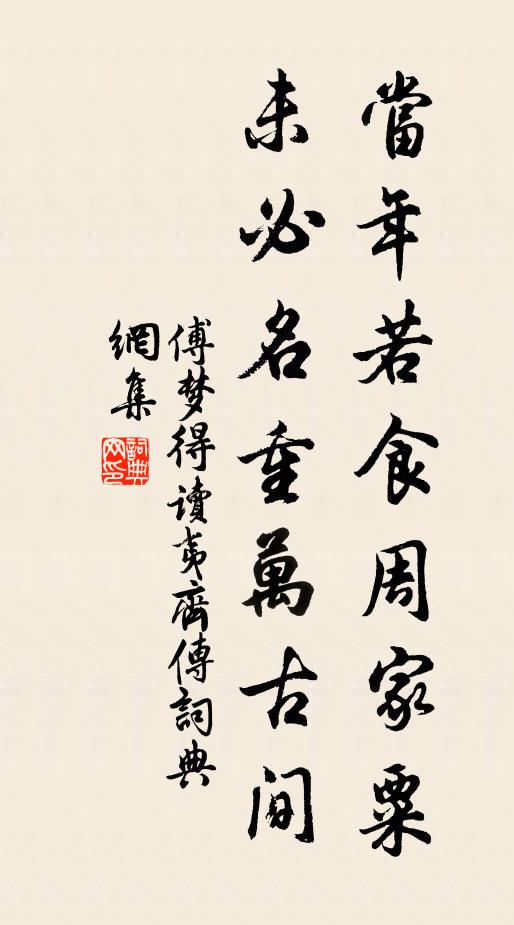 當年若食周家粟
未必名重萬古间
傅梦得讀夷齊傳詞典
網集
詞典
网印